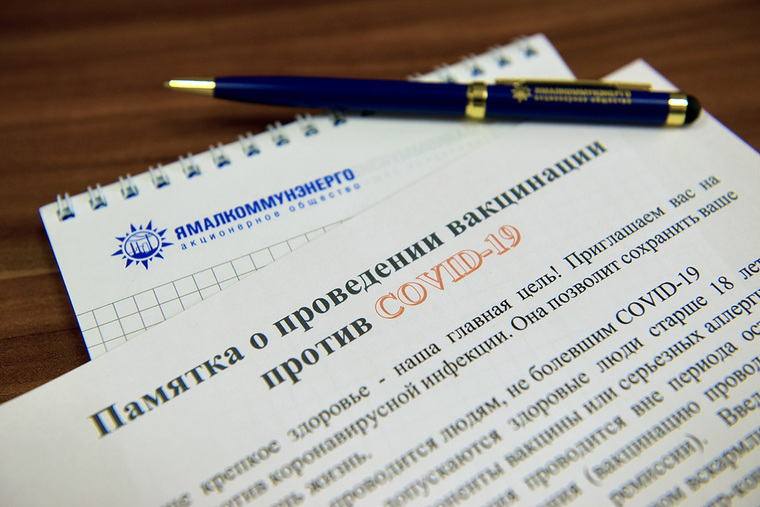 ЯМАЛКОММУНЭНЕРГО
акционерное общество
ЯМАЛКОММУНЭНЕРГО
акционерное общество
Памятка о проведении вакцинации
против COVID-19
крепкое здоровье - наша главная цель! Приглашаем вас на
против коронавирусной инфекции. Она позволит сохранить ваше
жизнь.
проводится людям, не болевшим COVID-19
допускаются здоровые люди старше 18
вакцины или серьезных
проводится вне периода
(вакцинацию
ремиссии).